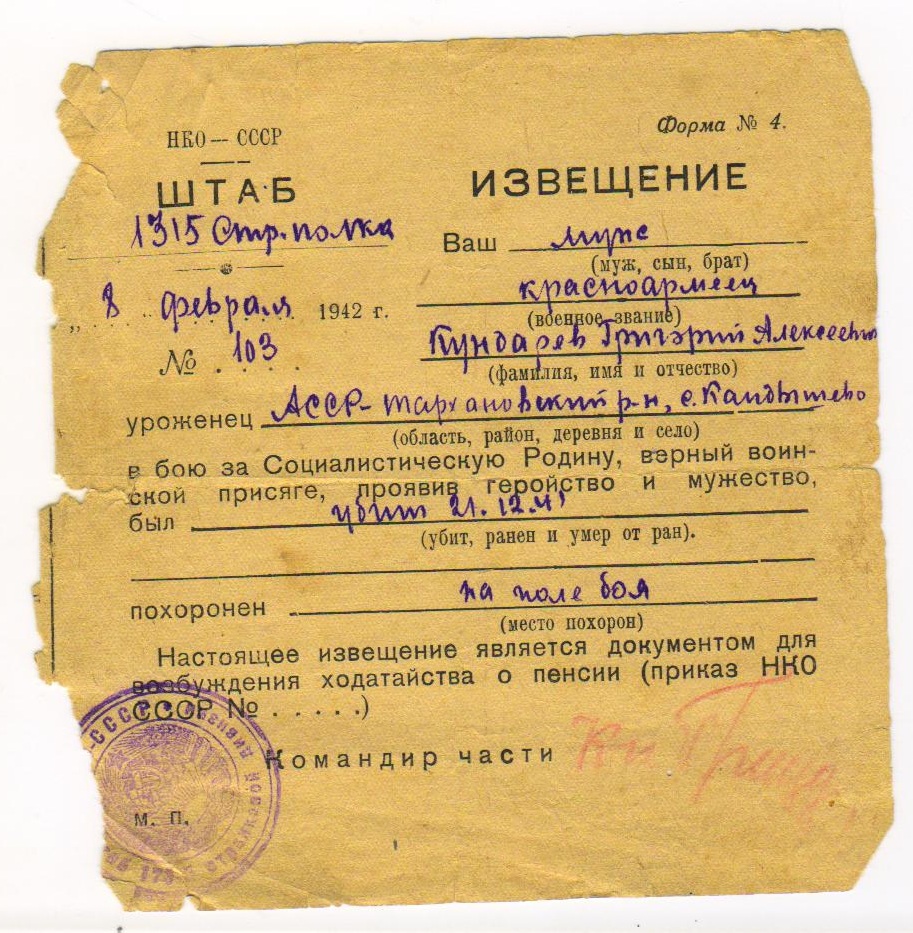 НКО — СССР
Форма № 4.
ШТАБ
ИЗВЕЩЕНИЕ
1315 Стр. полка
Ваш муж
(муж, сын, брат)
„ 8 февраля 1942 г.
красноармеец
(военное звание)
№ 103
Кундарев Григорий Алексеевич
(фамилия, имя и отчество)
уроженец АССР-Тархановский р-н, с. Кандышево
(область, район, деревня и село)
в бою за Социалистическую Родину, верный воин-
ской присяге, проявив геройство и мужество,
был убит 21.12.41
(убит, ранен и умер от ран).
похоронен на поле боя
(место похорон)
Настоящее извещение является документом для
возбуждения ходатайства о пенсии (приказ НКО
СССР № . . . . .)
Командир части
М. П.